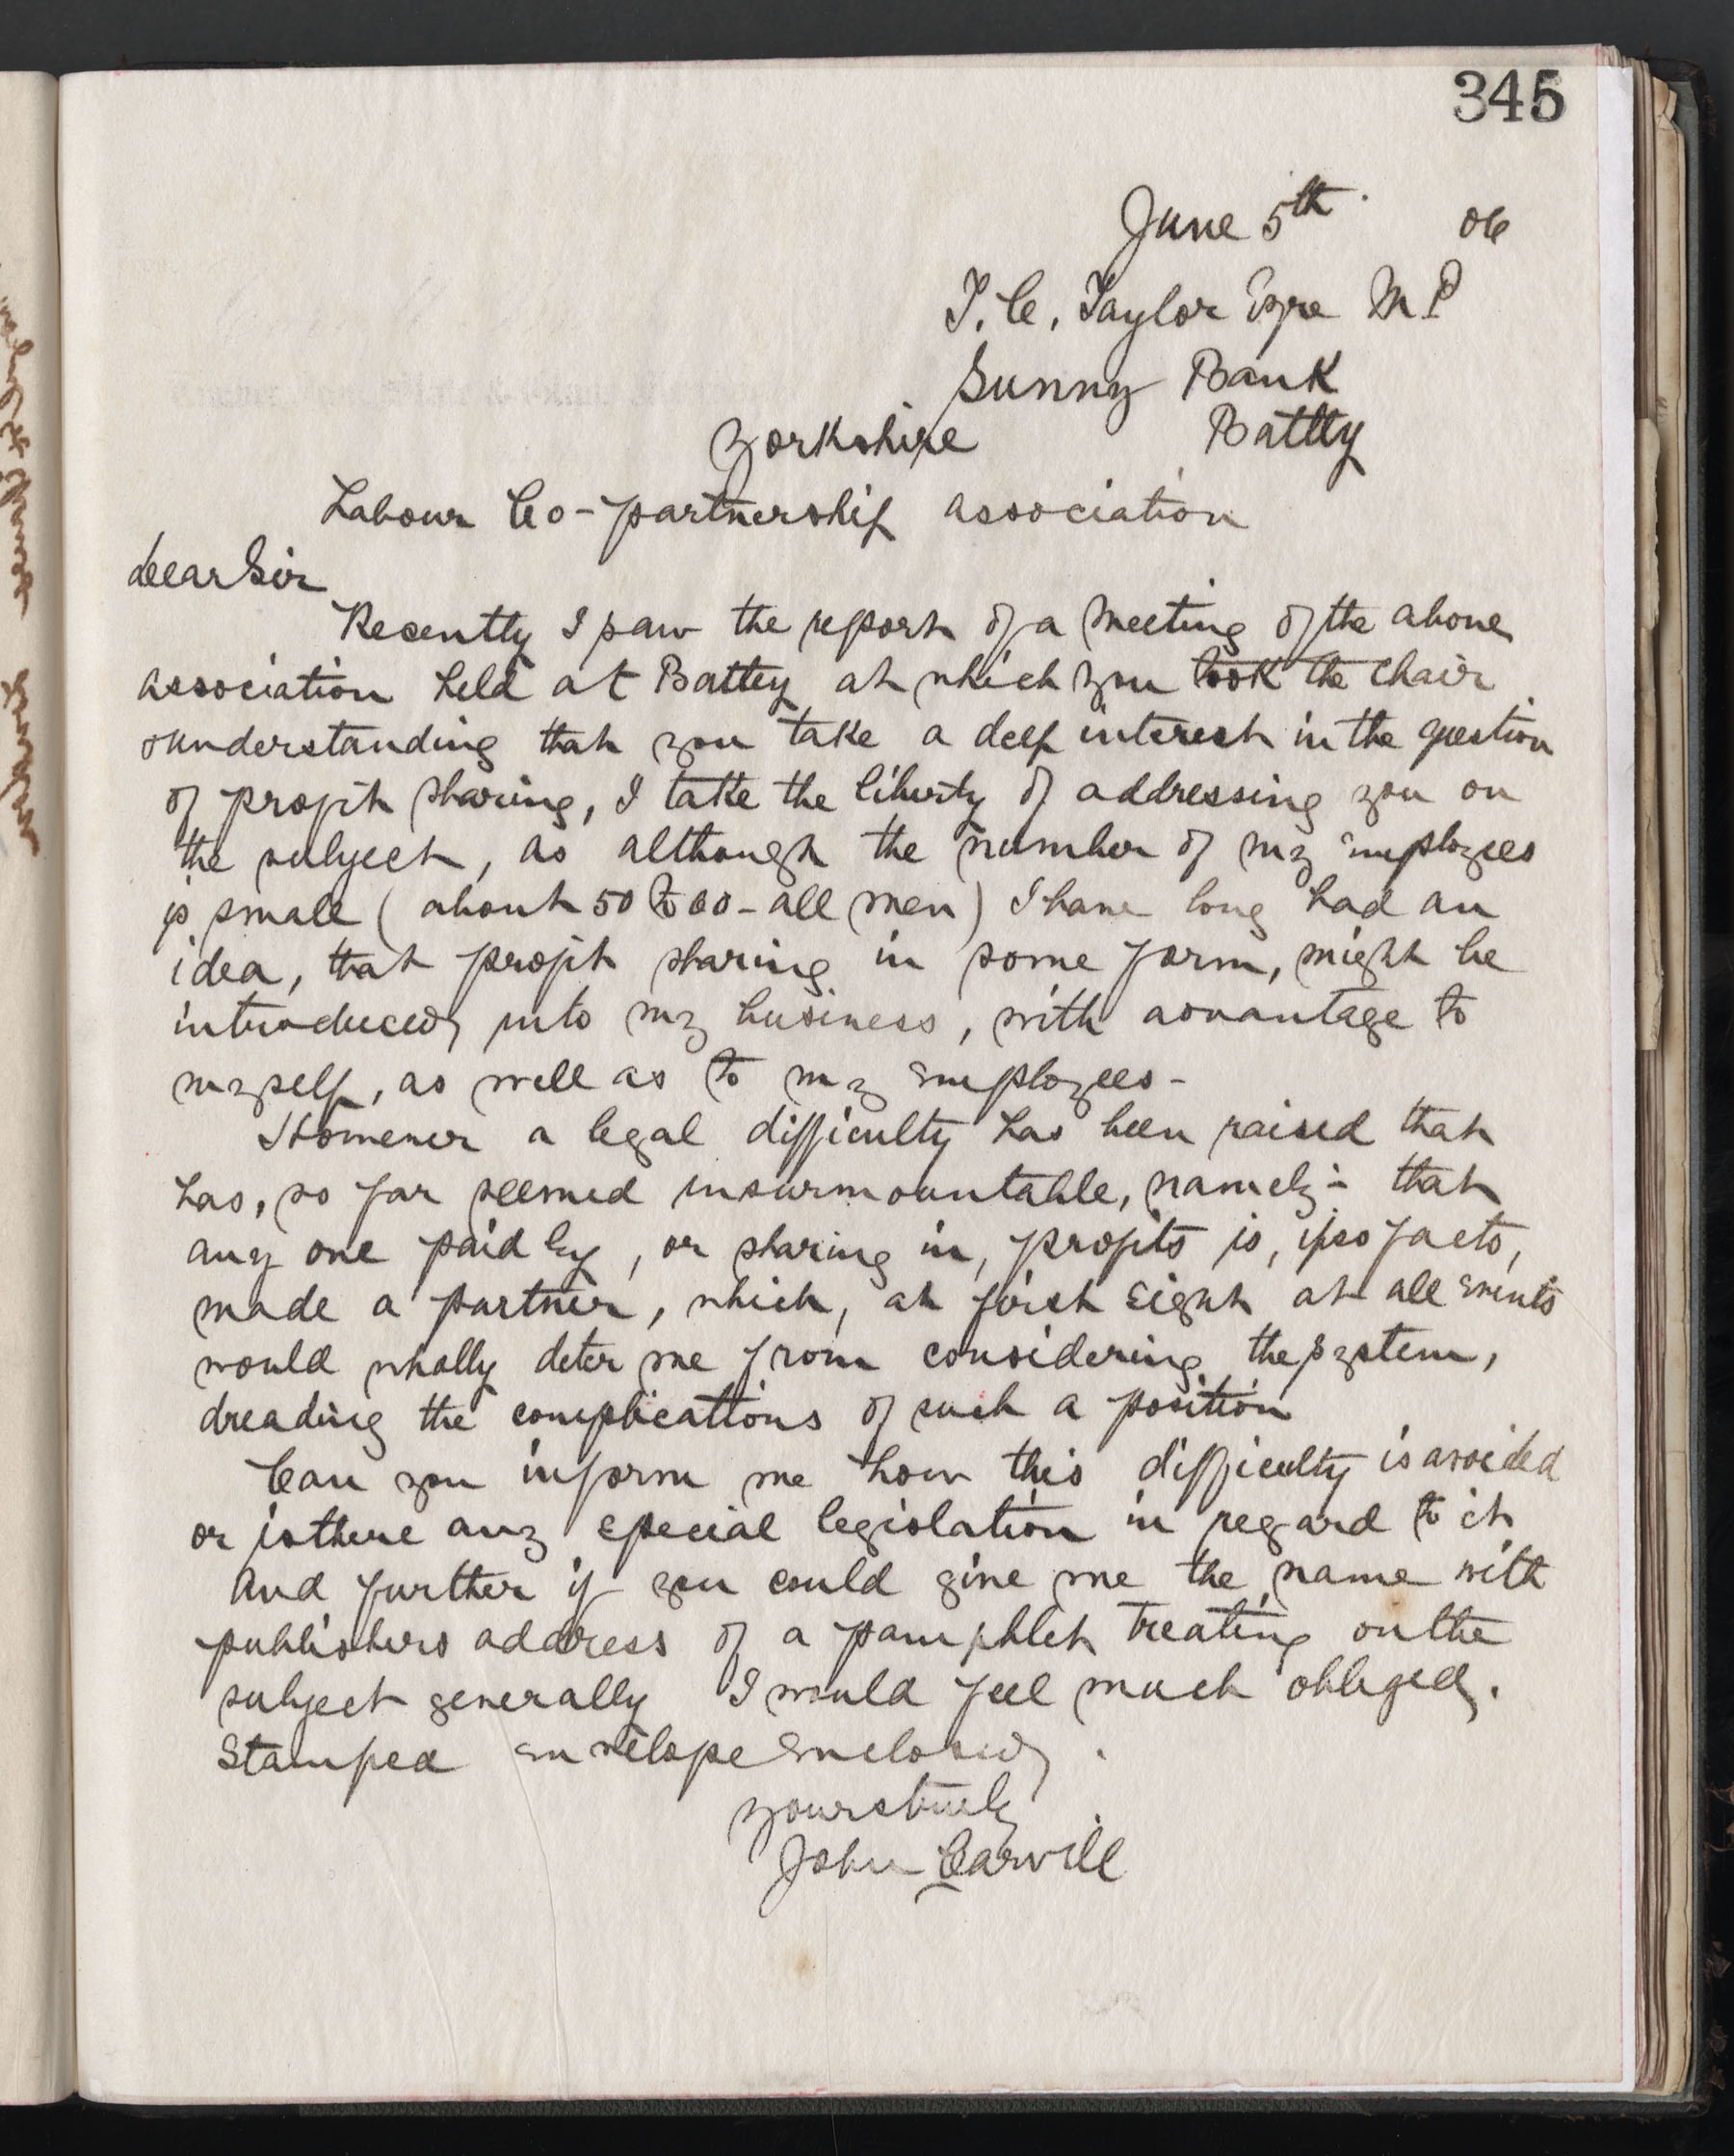 345
June 5th 06
T. C. Taylor Esqre M P
Sunny Bank
Yorkshire Battey
Labour Co-partnership association
dear Sir
Recently I saw the report of a Meeting of the above
association held at Battey at which you took the chair
& understanding that you take a deep interest in the question
of profit sharing, I take the liberty of addressing you on
the subject, as although the number of my employees
is small (about 50 to 60 - all men) I have long had an
idea, that profit sharing in some form, might be
introduced, into my business, with advantage to
myself, as well as to my employees -
However a legal difficulty has been raised that
has, so far seemed insurmountable, namely - that
any one paid by, or sharing in, profits is, ipso facto,
made a partner, which, at first sight at all events
would wholly deter me from considering the system,
dreading the complications of such a position
Can you inform me how this difficulty is avoided
or is there any special legislation in regard to it
And further if you could give me the name with
publishers address of a pamphlet treating on the
subject generally I would feel much obliged.
Stamped envelope enclosed.
yours truly
John Carvill